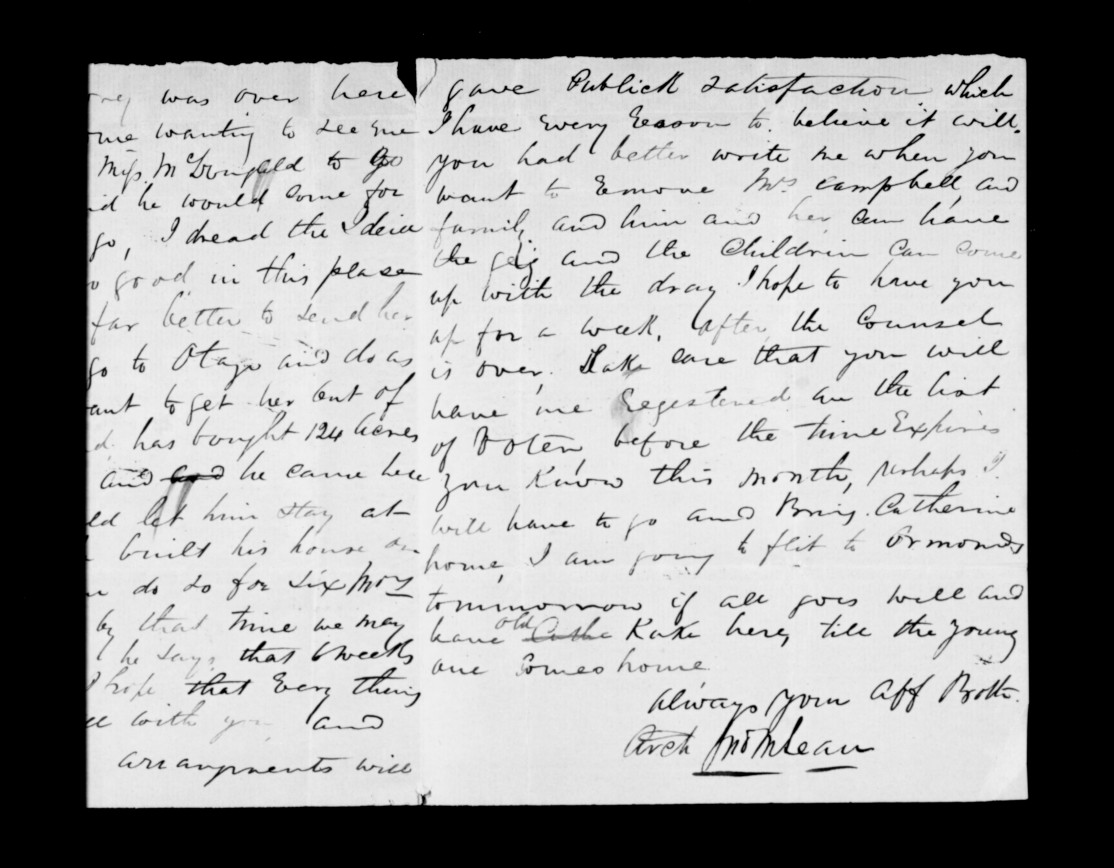 was over here
me wanting to see me
Miss McDougald to go
he would come for
go, I dread the Ideia
good in this plase
far better to send her
go to Otago and do as
want to get her out of
has bought 124 Acres
and and he came here
let him stay at
built his house on
do so for six Mos
by that time we may
he says that 6 weeks
I hope that Every thing
with you and
arrangments will
gave Publick satisfaction which
I have every Reason to believe it will.
you had better write me when you
want to Remove Mrs Campbell and
family and him and her can have
the geig and the Childrin can come
up with the dray I hope to have you
up for a week, after the Counsel
is over. Take care that you will
have me Regestered on the list
of Voters before the time Expires
you Know this month, perhaps I
will have to go and Bring Catherine
home, I am going to flit to Ormonds
tommorrow if all goes well and
have old Cathe Kate here, till the young
one Comes home
always your Aff Broth.
Arch Jno McLean